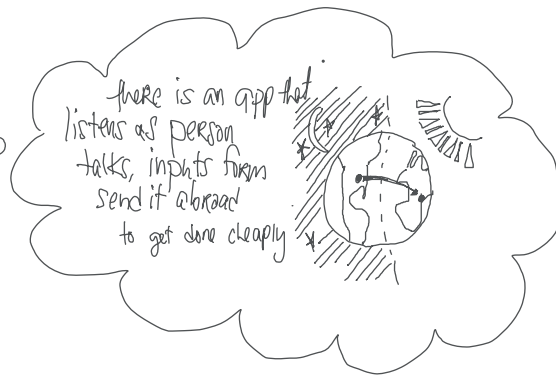 there is an app that
listens as person
talks, inputs form
send it abroad
to get done cheaply